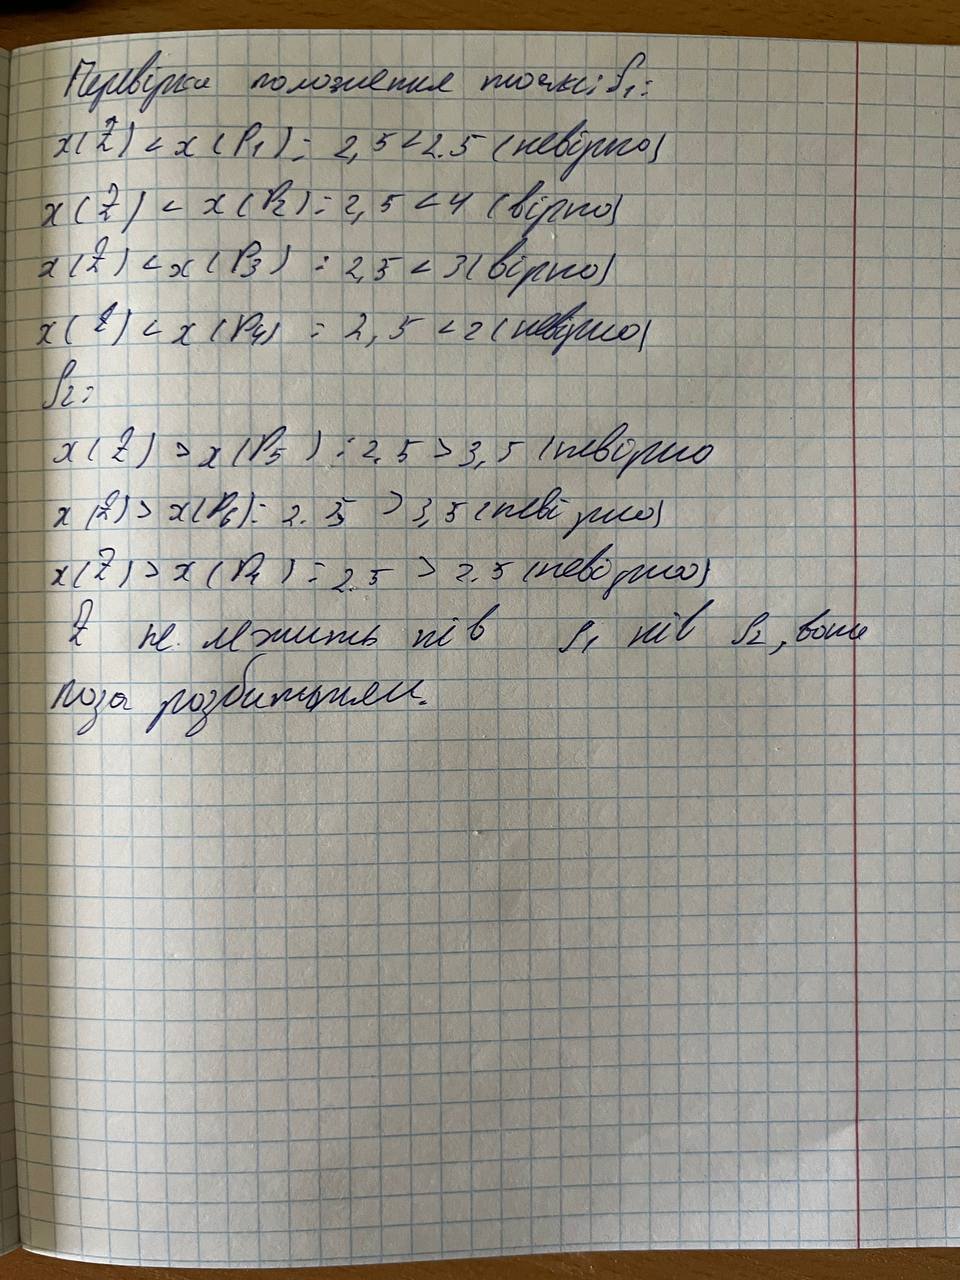 Перевірка положення точки: S₁:
x(Z) < x(P₁) = 2,5 < 2.5 (невірно)
x(Z) < x(P₂) = 2,5 < 4 (вірно)
x(Z) < x(P₃) = 2,5 < 3 (вірно)
x(Z) < x(P₄) = 2,5 < 2 (невірно)
S₂:
x(Z) > x(P₅) = 2.5 > 3,5 (невірно
x(Z) > x(P₆) = 2.5 > 3,5 (невірно)
x(Z) > x(P₁) = 2.5 > 2.5 (невірно)
Z не лежить ні в S₁ ні в S₂, вона
поза розбиттям.